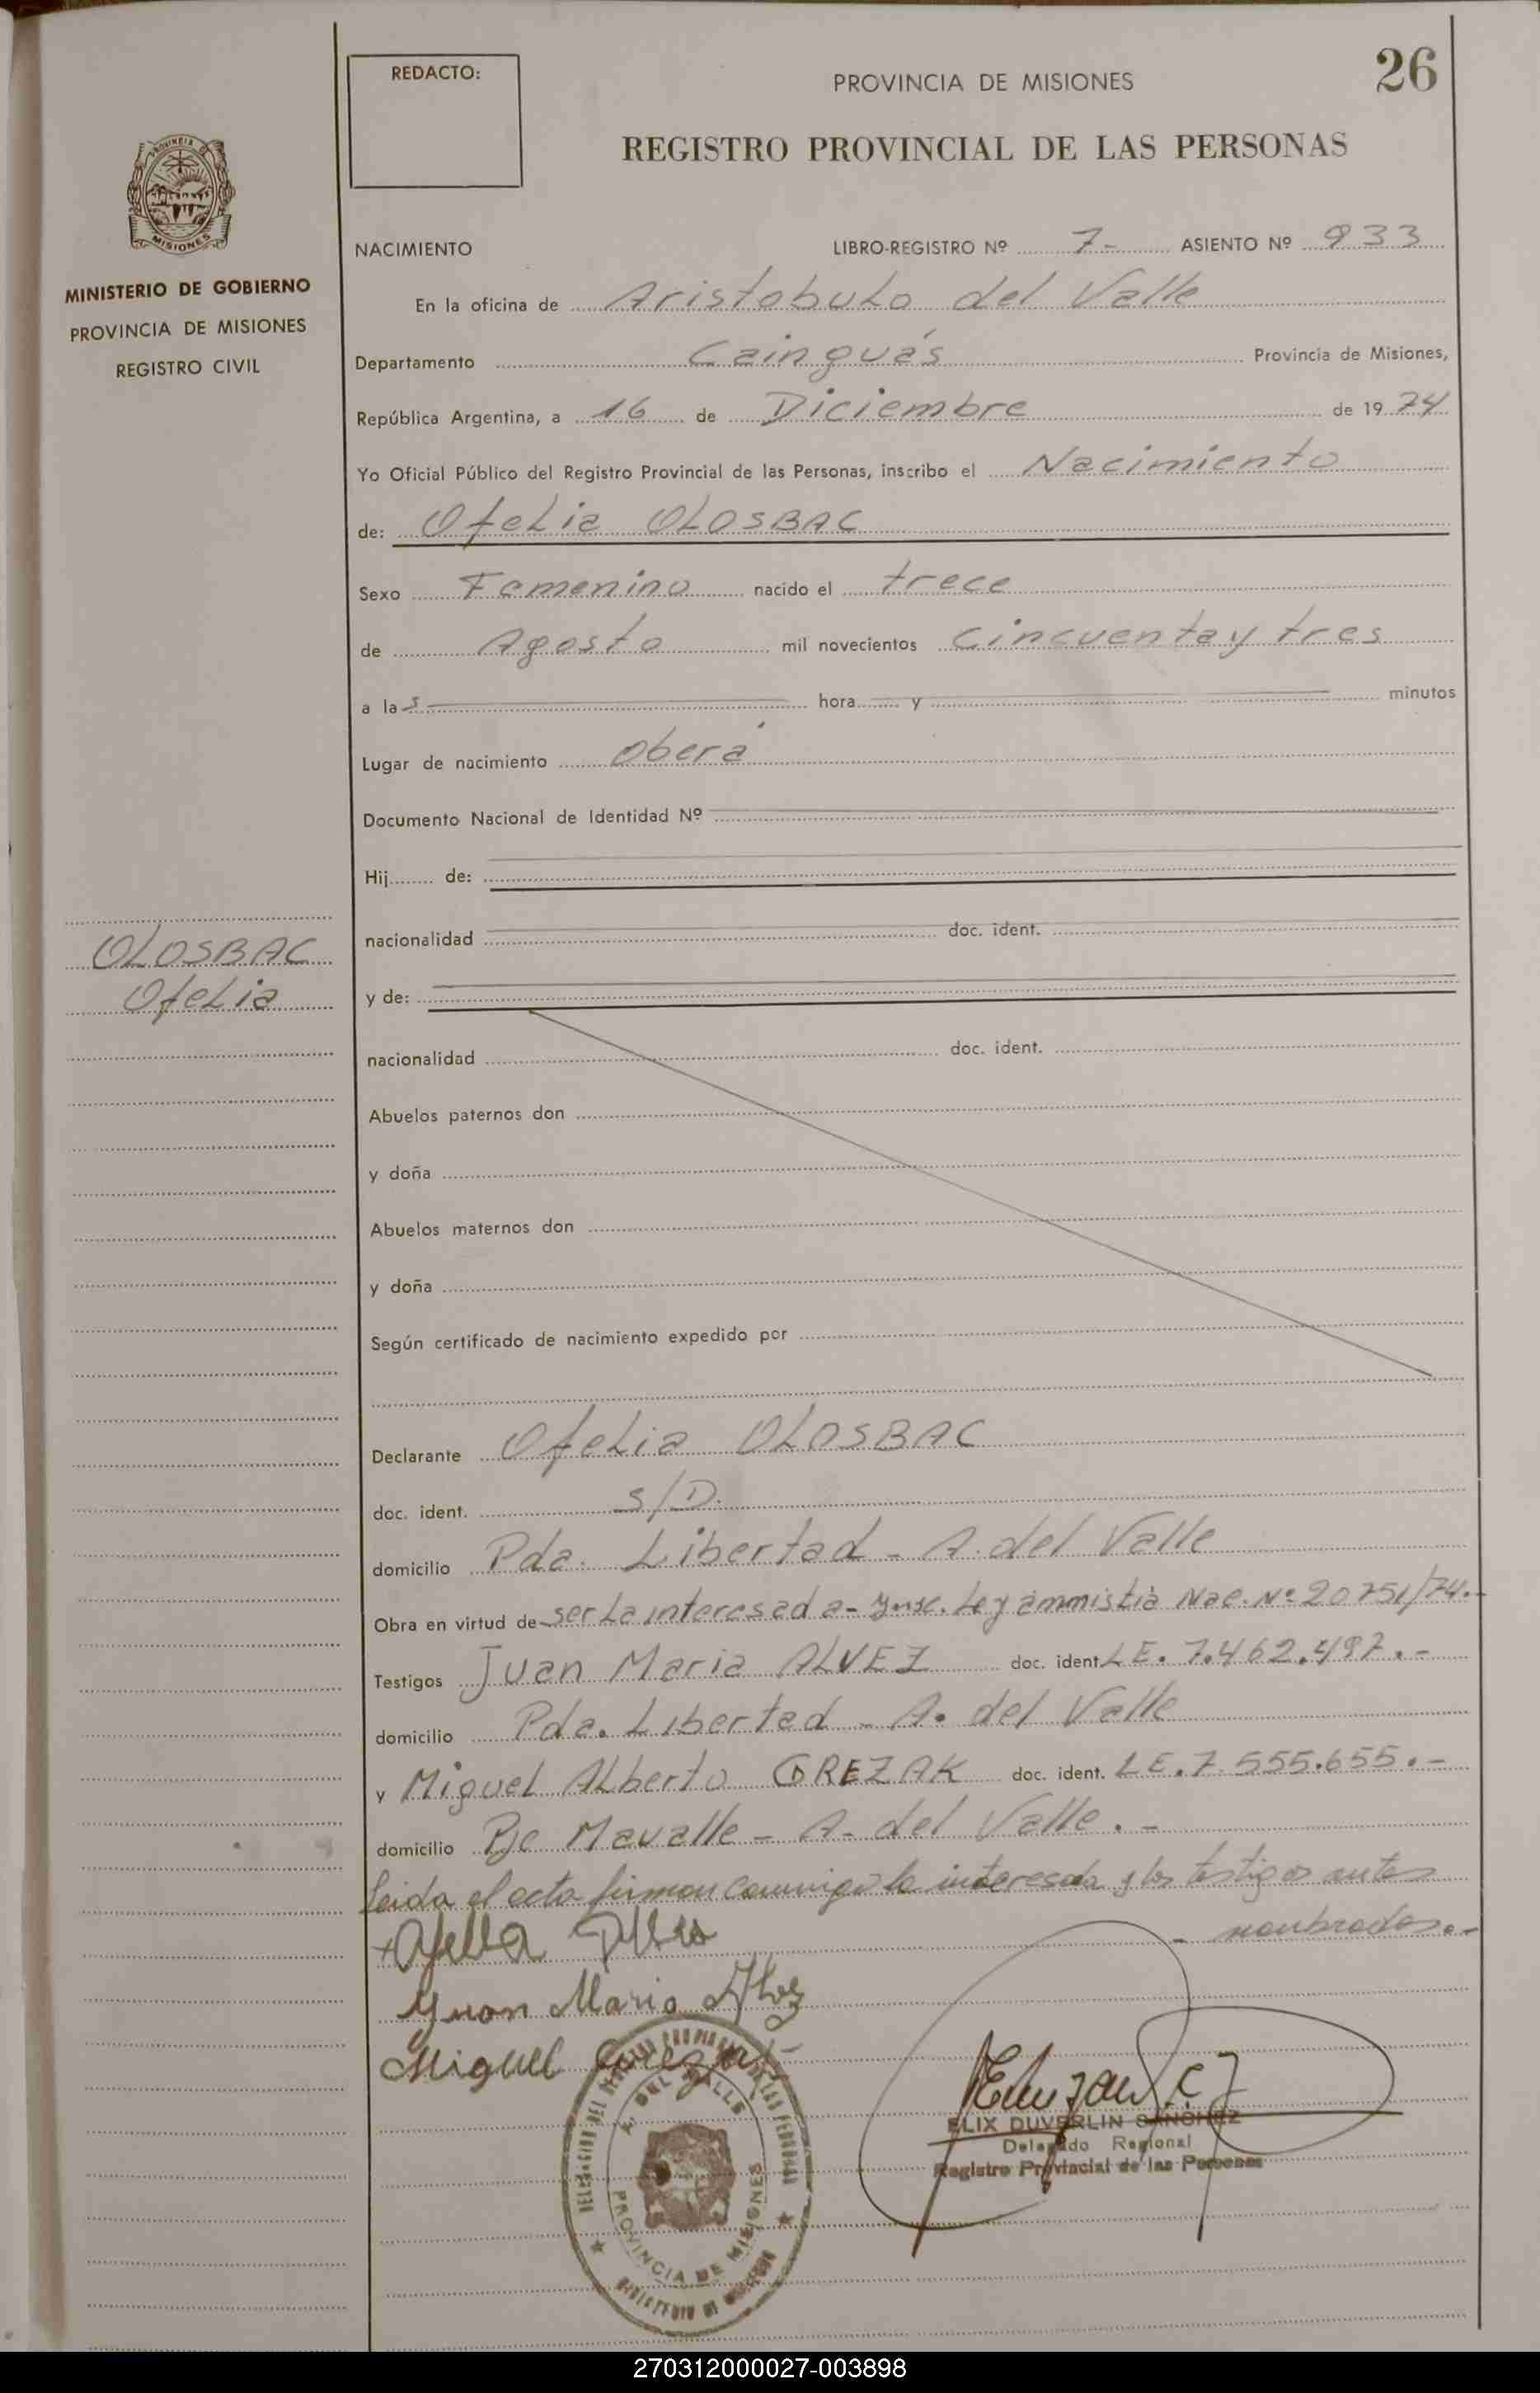 REDACTO:
PROVINCIA DE MISIONES
26
REGISTRO PROVINCIAL DE LAS PERSONAS
MISIONES
MINISTERIO DE GOBIERNO
PROVINCIA DE MISIONES
REGISTRO CIVIL
NACIMIENTO LIBRO-REGISTRO Nº 7- ASIENTO Nº 933
En la oficina de Aristobulo del Valle
Departamento Cainguás Provincia de Misiones,
República Argentina, a 16 de Diciembre de 1974
Yo Oficial Público del Registro Provincial de las Personas, inscribo el Nacimiento
de: Ofelia OLOSBAC
Sexo Femenino nacido el trece
de Agosto mil novecientos cincuenta y tres
a las hora y minutos
Lugar de nacimiento Oberá
Documento Nacional de Identidad Nº
Hij de:
nacionalidad doc. ident.
OLOSBAC
Ofelia
y de:
nacionalidad doc. ident.
Abuelos paternos don
y doña
Abuelos maternos don
y doña
Según certificado de nacimiento expedido por
Declarante Ofelia OLOSBAC
doc. ident. S/D.
domicilio Pda. Libertad - A. del Valle
Obra en virtud de ser la interesada - Ynsc. Ley ammistia Nac. Nº 20751/74.-
Testigos Juan Maria ALVEZ doc. ident. LE. 7.462.497.-
domicilio Pda. Libertad - A. del Valle
y Miguel Alberto GREZAK doc. ident. LE. 7.555.655.-
domicilio Bje Mavalle - A. del Valle.-
Leida el acta firman conmigo la interesada y los testigos antes
nombrados.-
Juan Mario Alvez
Miguel Grezak
ELIX DUVERLIN SANCHEZ
Delegado Regional
Registro Provincial de las Personas
A. DEL VALLE
PROVINCIA DE MISIONES
270312000027-003898